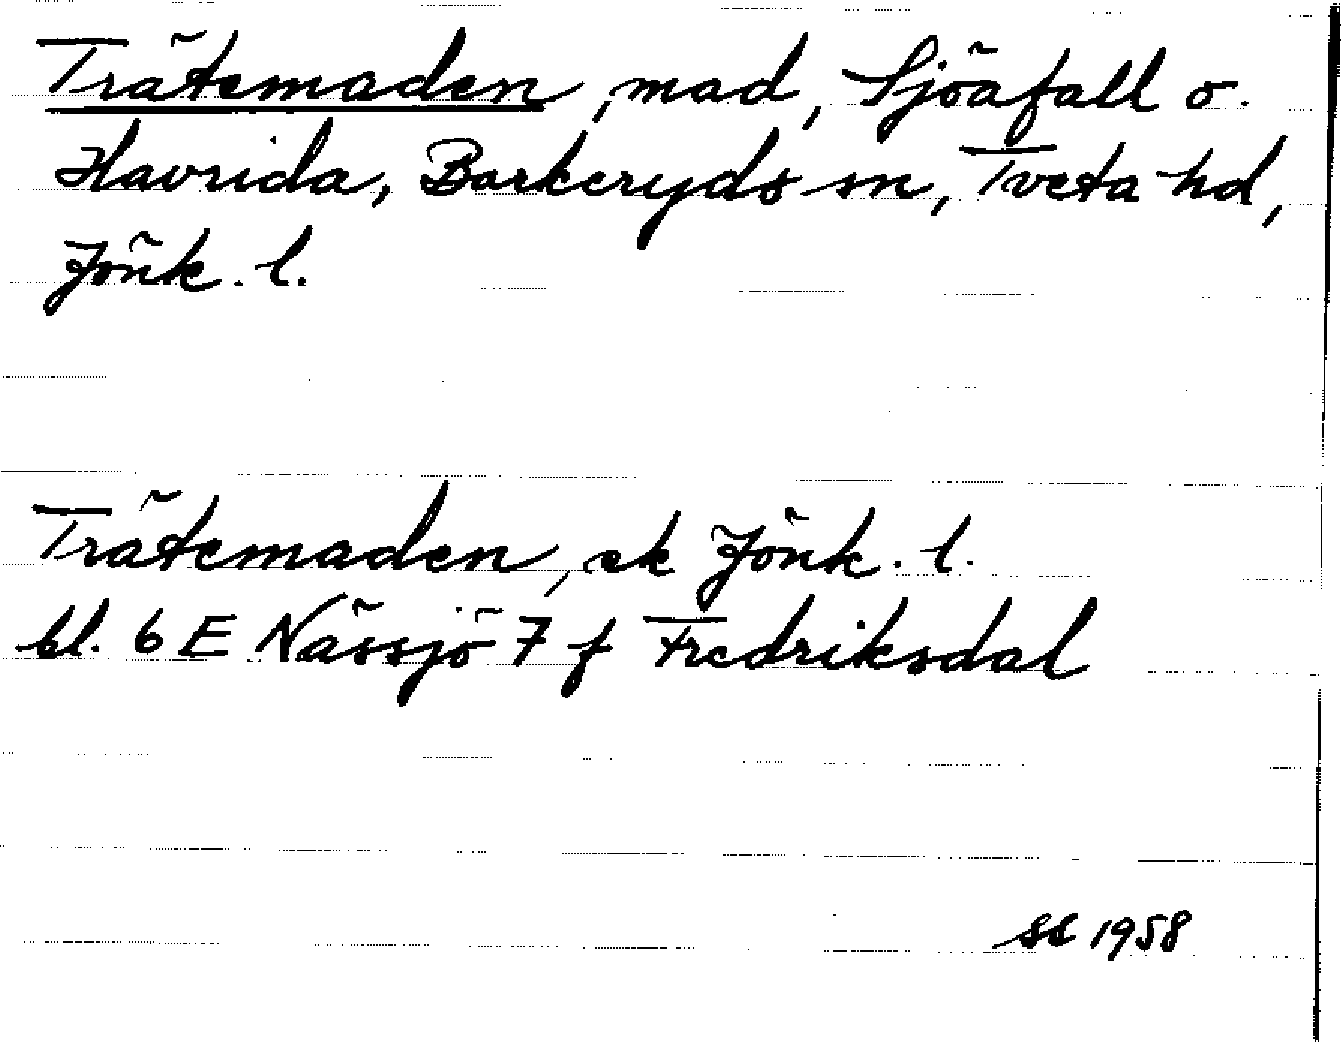 Trätemaden, mad, Sjöafall o.
Havrida, Barkeryds sn, Tveta hd,
Jönk. l.
Trätemaden, ek Jönk. l.
bl. 6 E Nässjö 7 f Fredriksdal
SC 1958